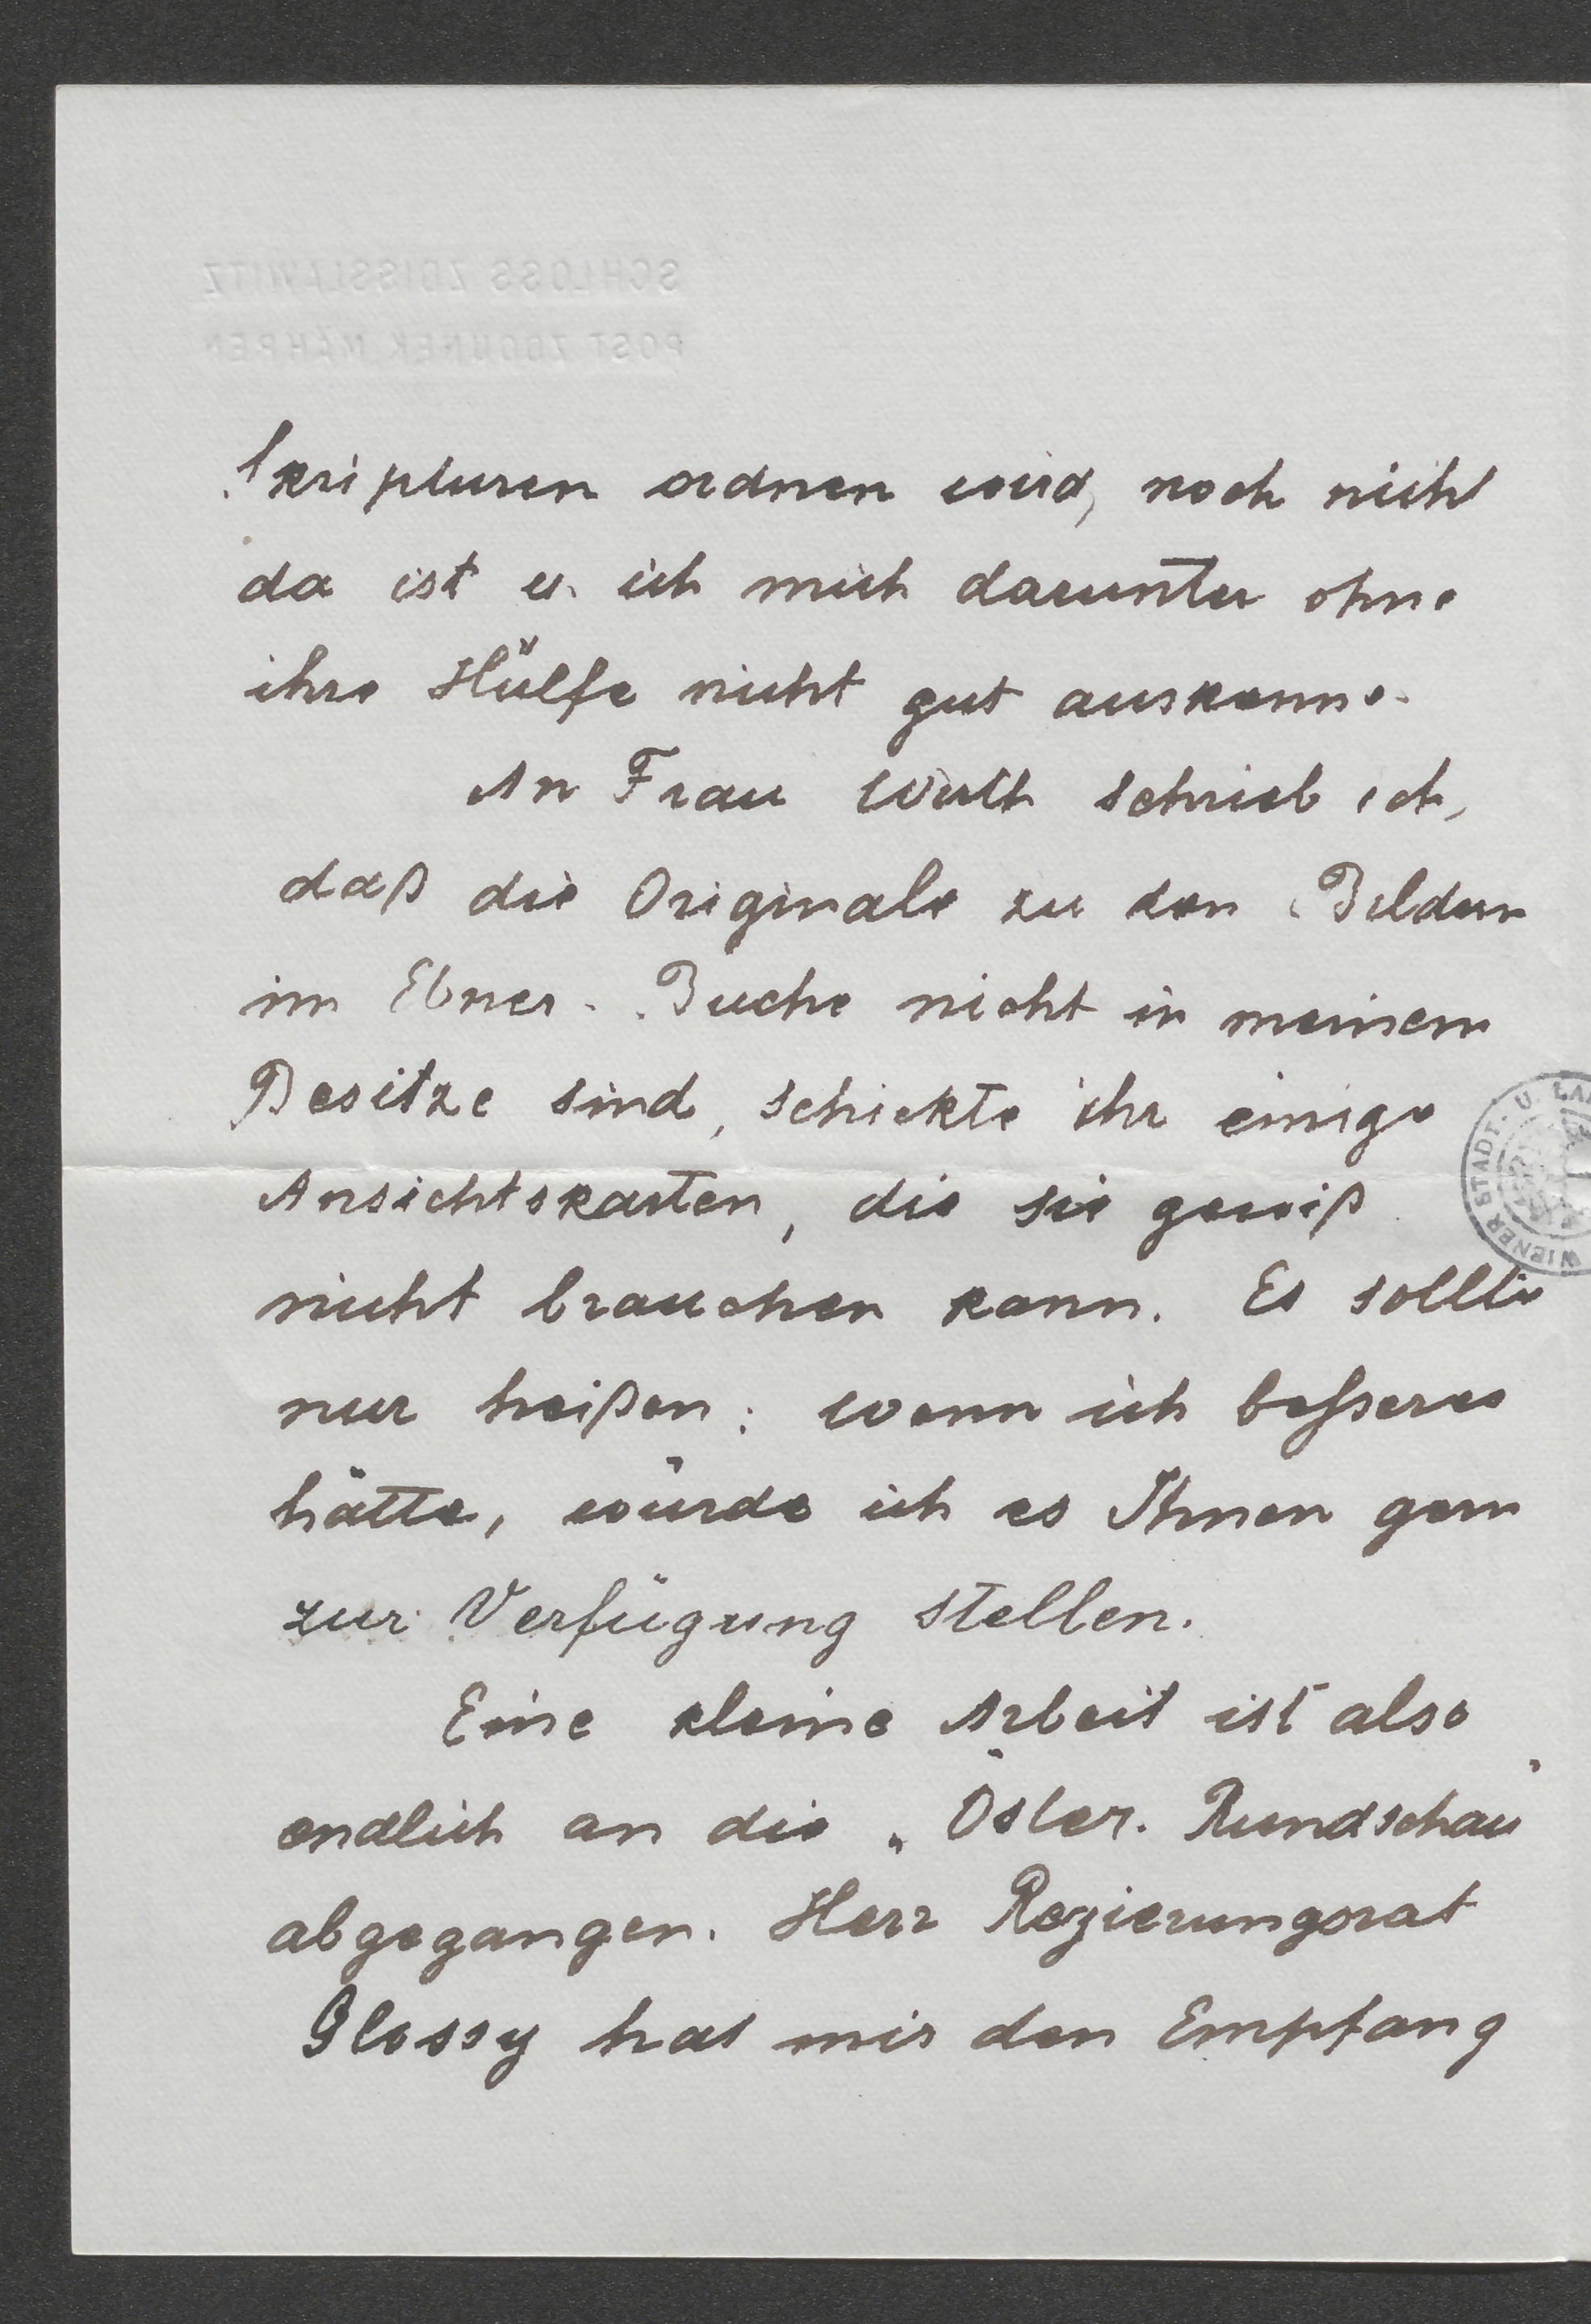 SCHLOSS ZDISSLAWITZ
POST ZDOUNEK MÄHREN
Skripturen ordnen wird, noch nicht
da ist u. ich mich darunter ohne
ihre Hülfe nicht gut auskenne.
An Frau schrieb ich,
daß die Originale zu den Bildern
im Ebner-Buche nicht in meinem
Besitze sind, schickte ihr einige
Ansichtskarten, die sie gewiß
nicht brauchen kann. Es sollte
nur heißen: wenn ich besseres
hätte, würde ich es Ihnen gern
zur Verfügung stellen.
Eine kleine Arbeit ist also
endlich an die „Öster. Rundschau"
abgegangen. Herr Regierungsrat
Glossy hat mir den Empfang
WIENER STADT- U. LA